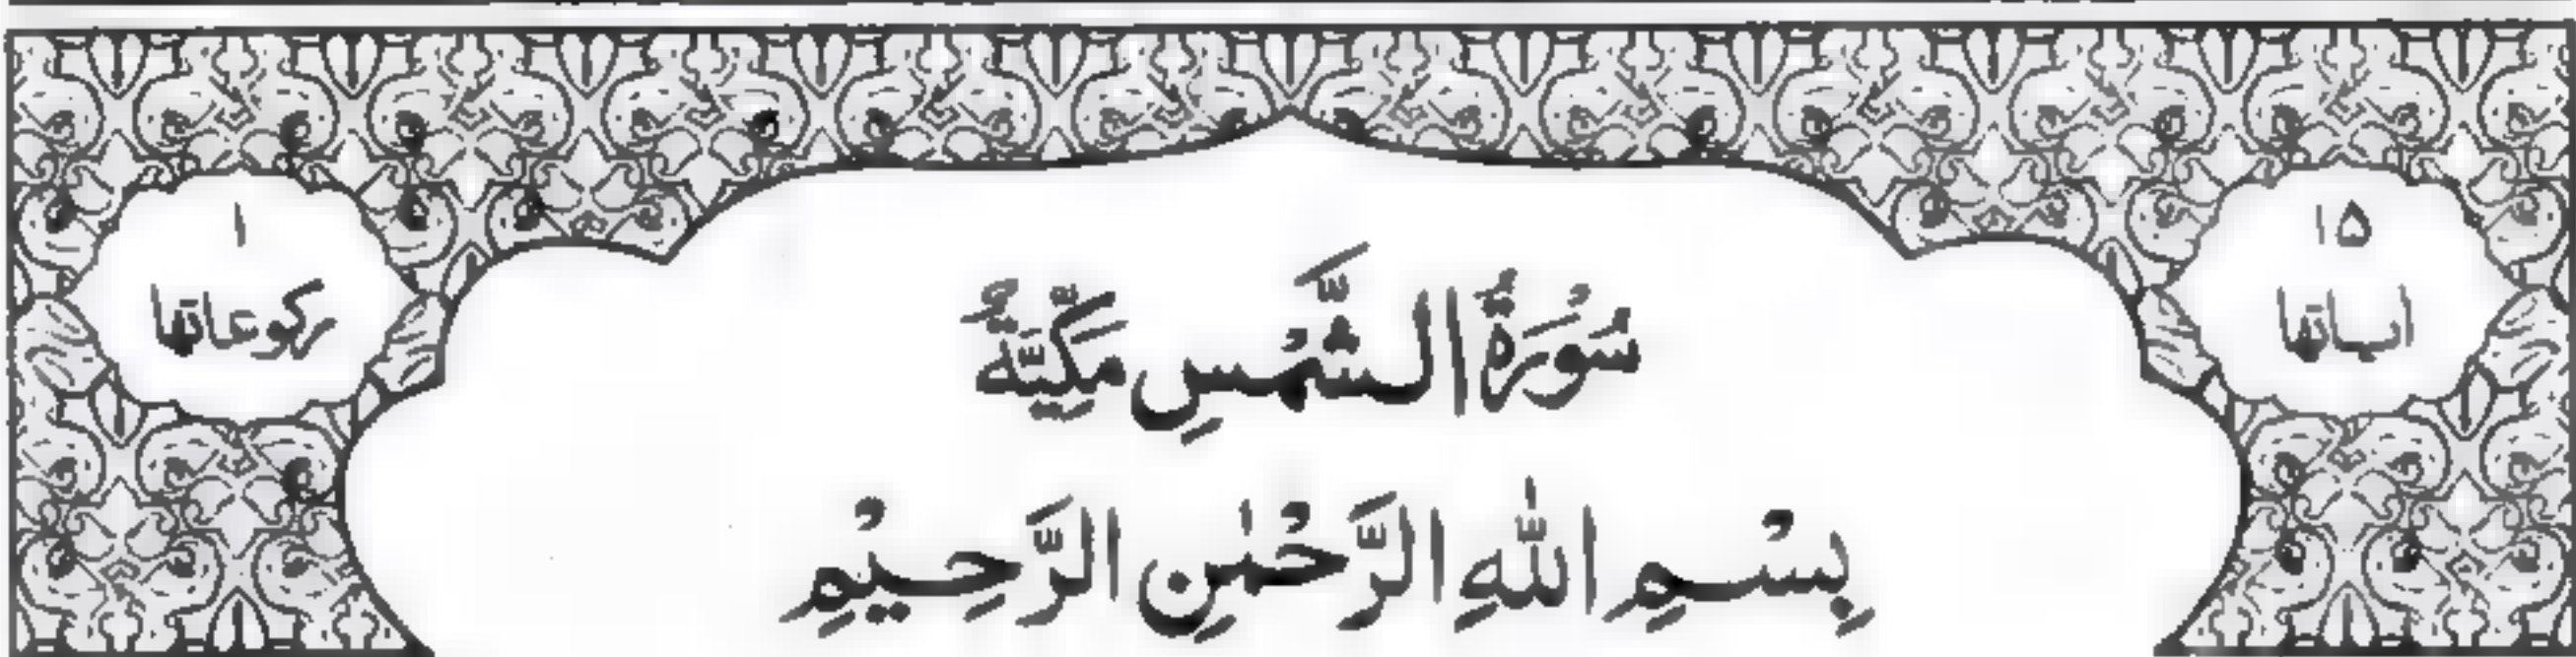 ۱۵
اٰیاتها
سُوْرَةُ الشَّمْسِ مَكِّیَّةٌ
۱
ركوعاتها
بِسْمِ اللّٰهِ الرَّحْمٰنِ الرَّحِیْمِ